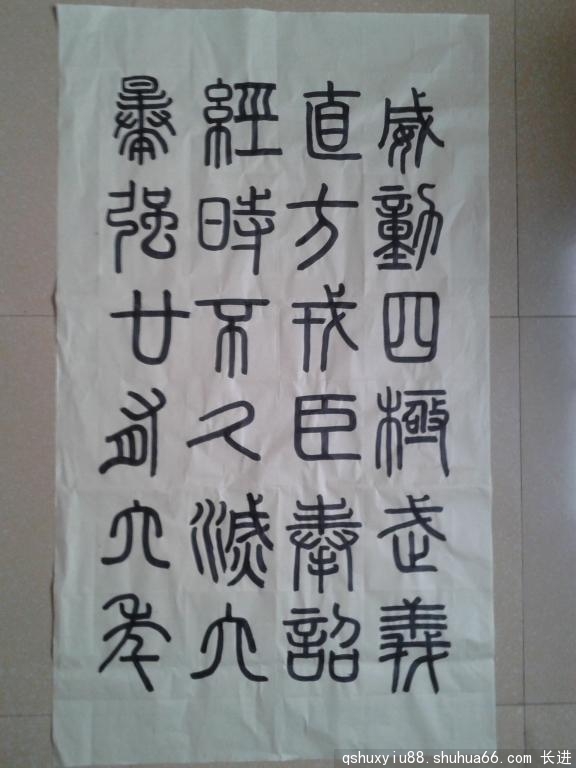 威動四極武義
直方戎臣奉詔
經時不久滅六
暴強廿有六年
qshuxyiu88.shuhua66.com 长进